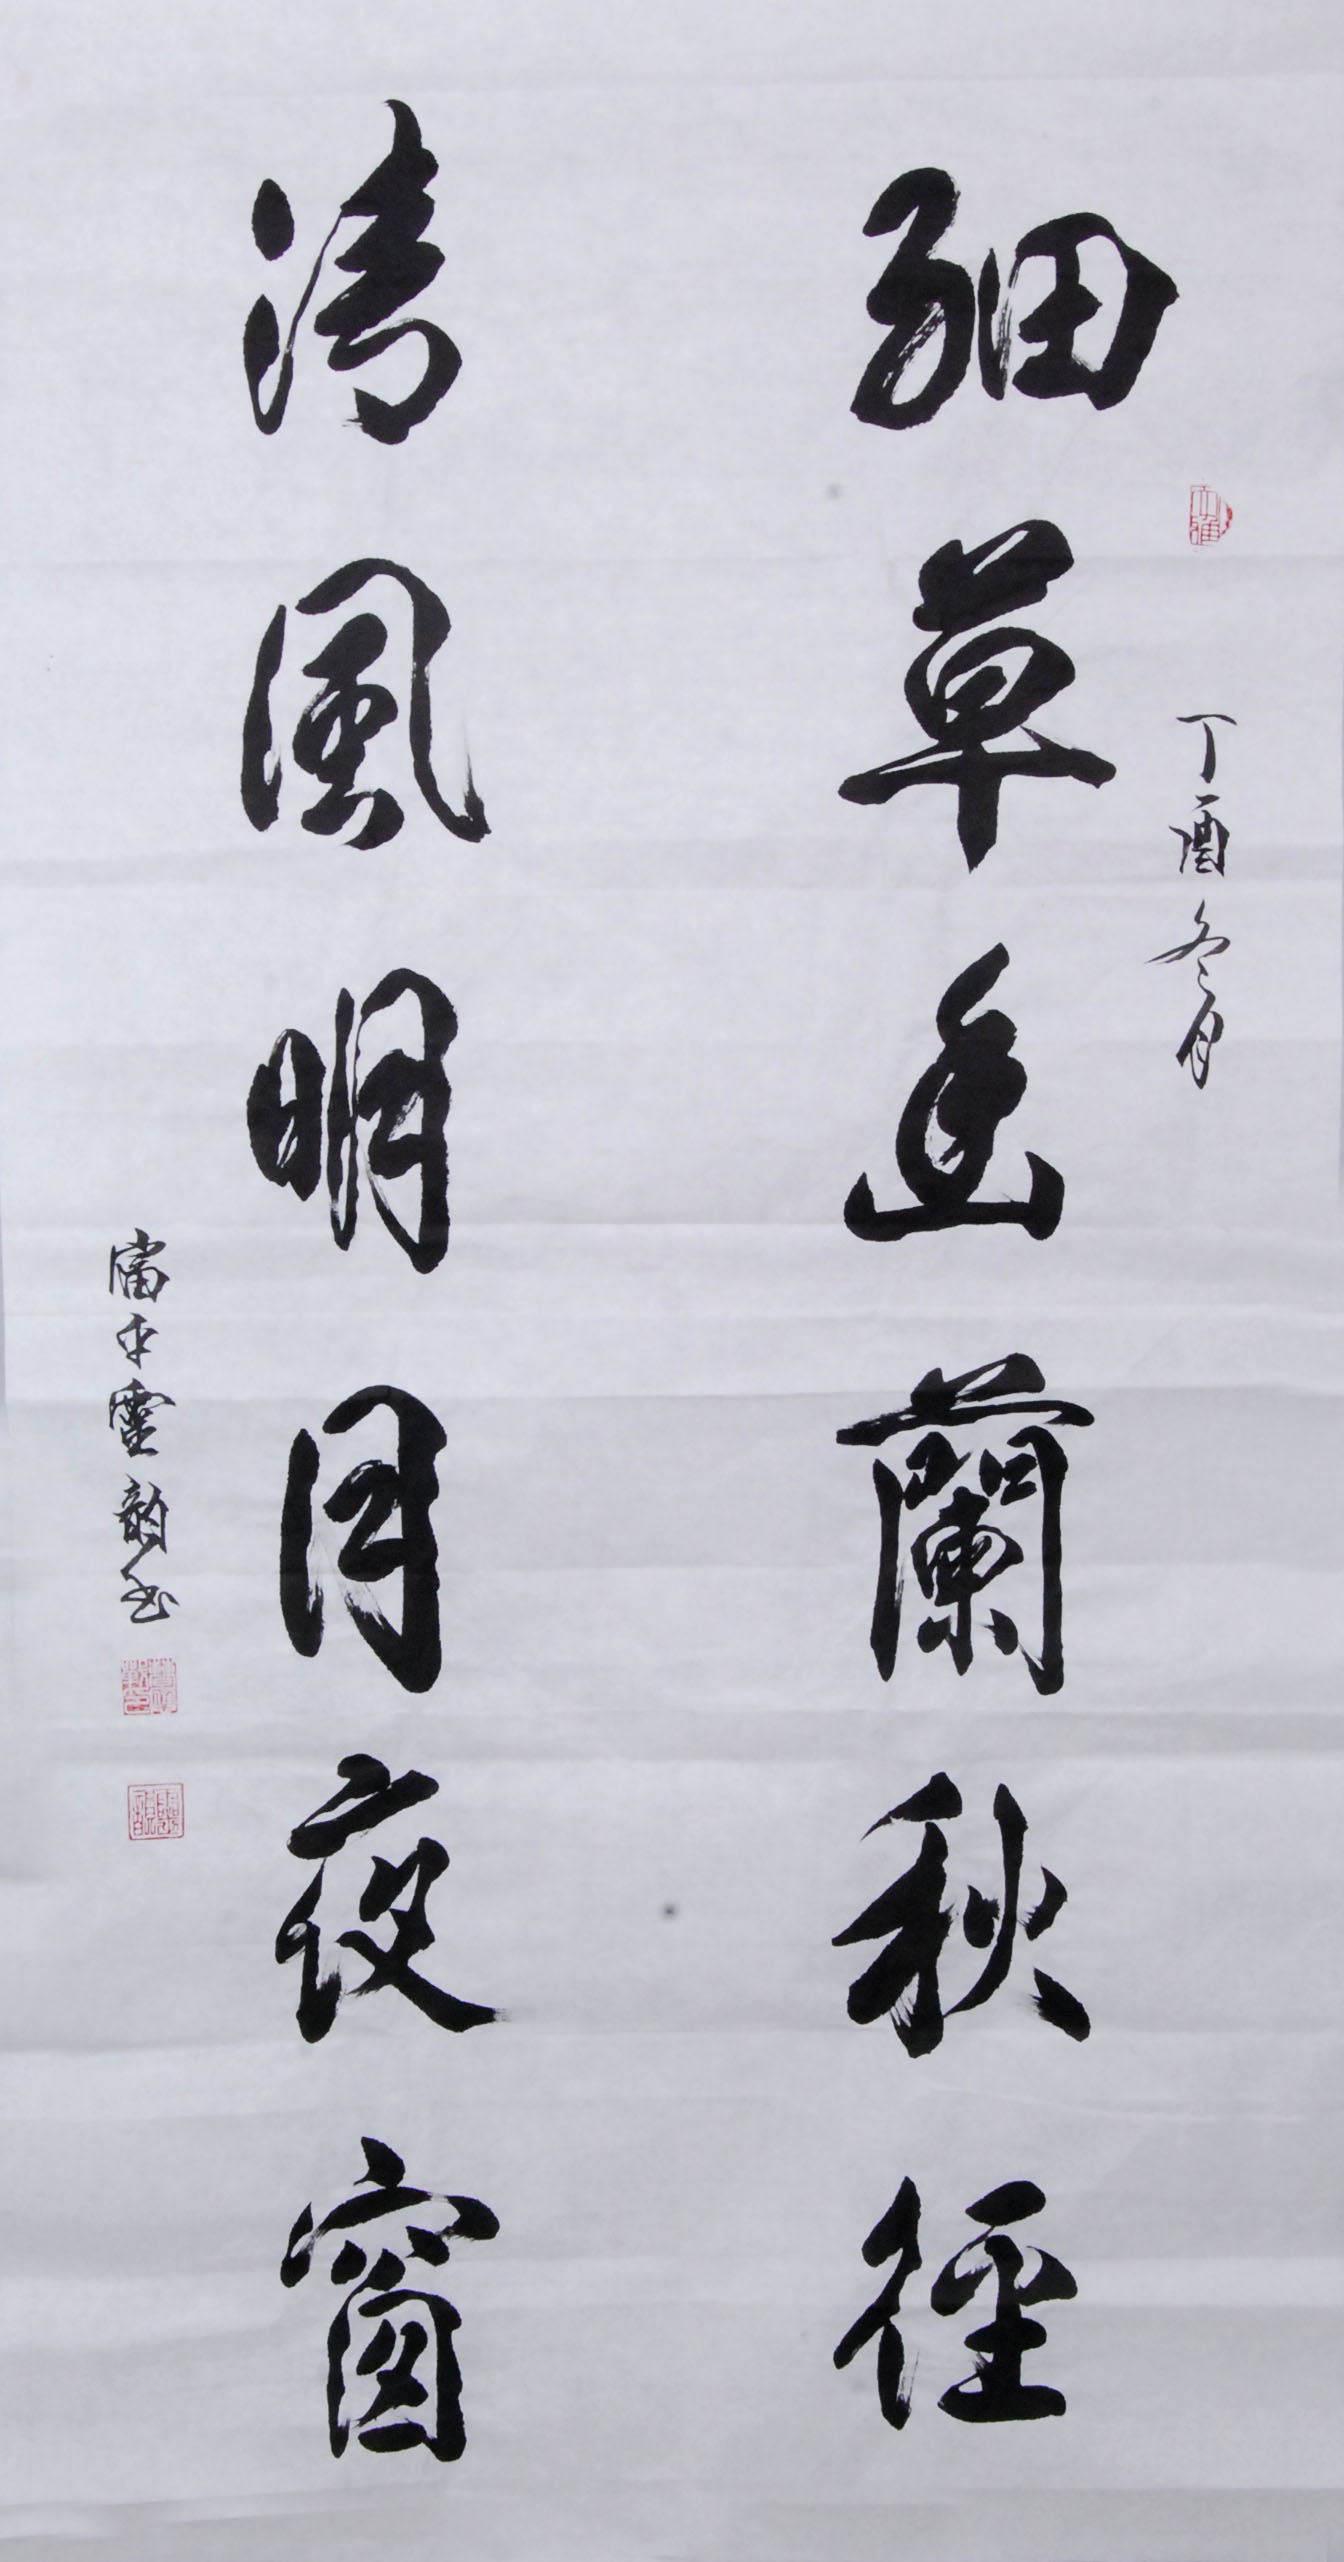 細草幽蘭秋徑
丁酉冬月
清風明月夜窗
富平靈韵書